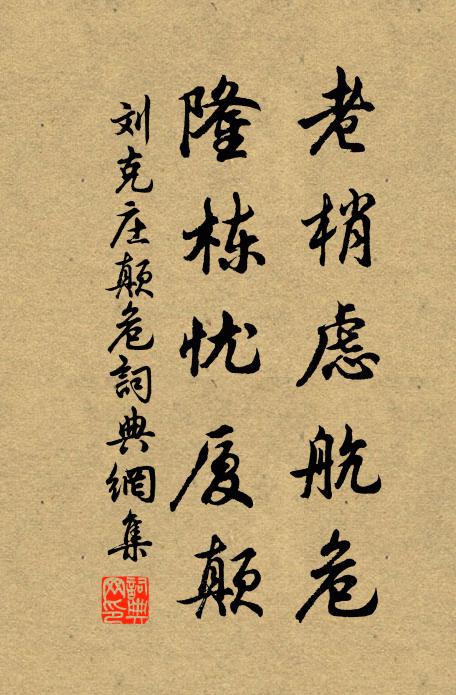 老梢虑航危
隆栋忧厦颠
刘克庄颠危詞典網集
詞典网印